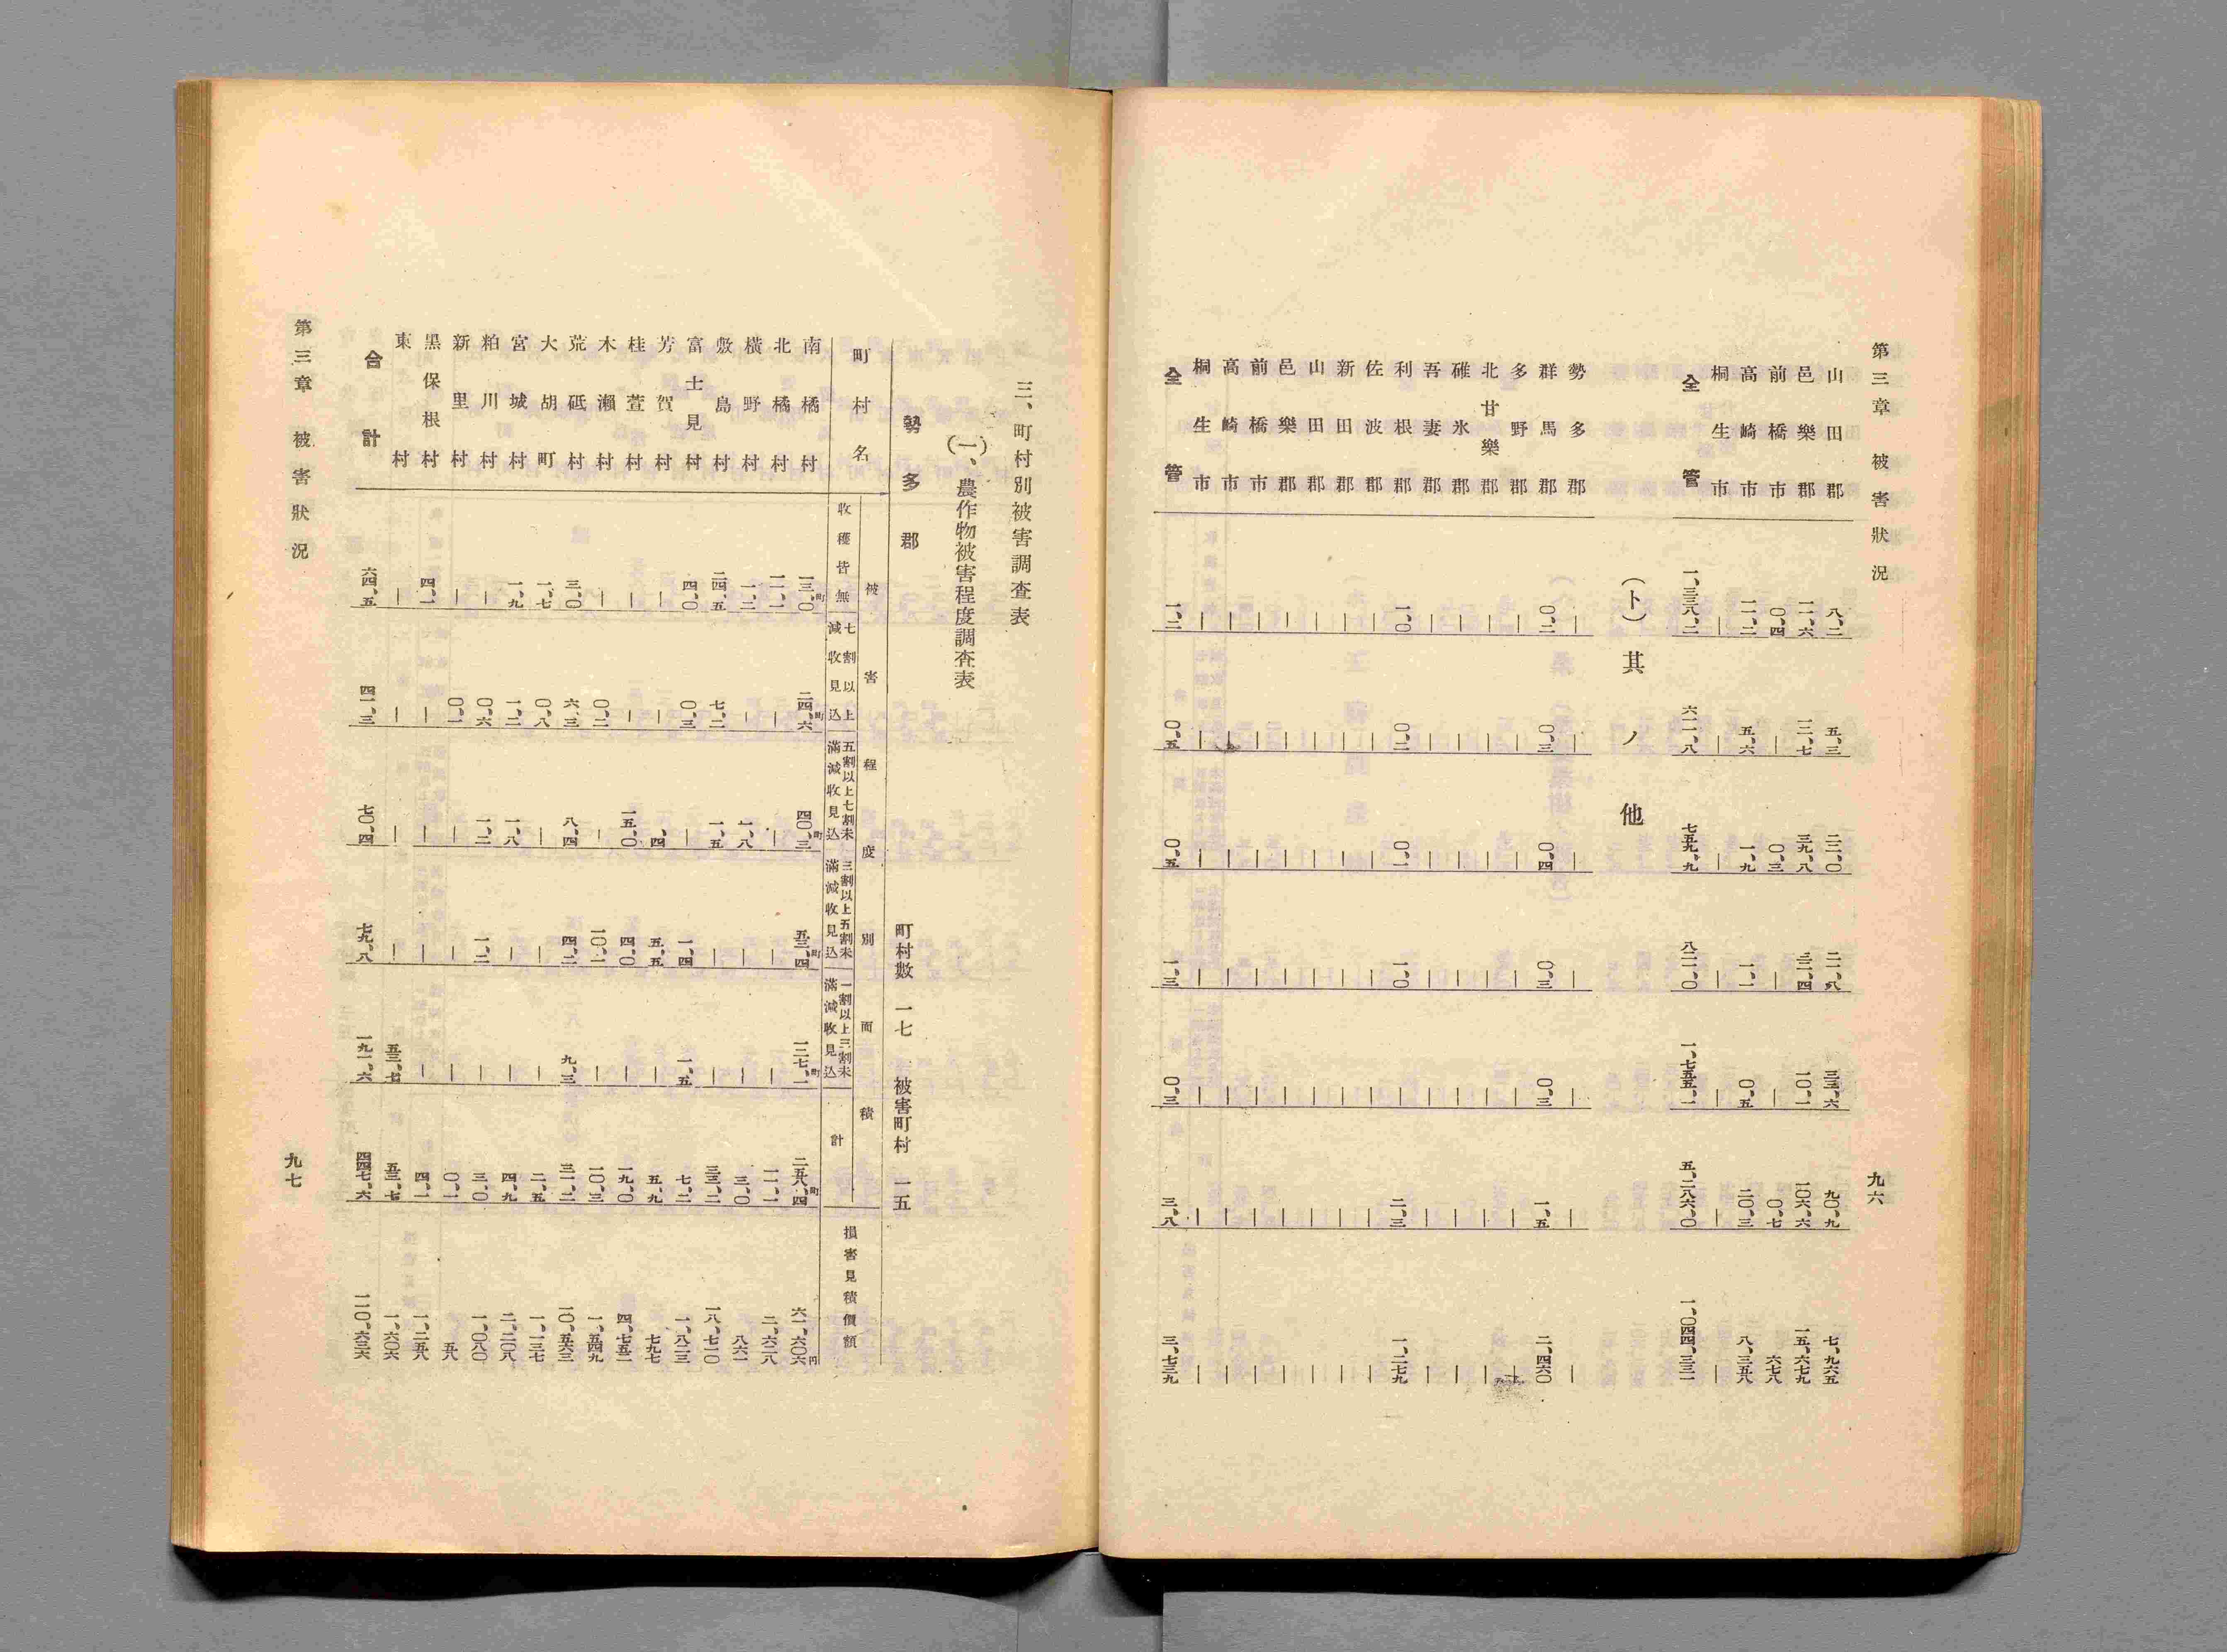 第三章 被害狀況 九六
山田郡 八、二 五、三 二二、〇 二一、八 三三、六 九〇、九 七、九六五
邑樂郡 一一、六 一二、七 三九、八 三二、四 一〇、一 一〇六、六 一五、六七九
前橋市 〇、四 | 〇、三 | | 〇、七 六七八
高崎市 一一、二 五、六 一、九 一、一 〇、五 二〇、三 八、三五八
桐生市 | | | | | | |
全管 一、三三八、二 六一一、八 七五九、九 八二一、〇 一、七五五、一 五、二八六、〇 一、〇四四、三三一
(ト) 其ノ他
勢多郡 | | | | | | |
群馬郡 〇、二 〇、三 〇、四 〇、三 〇、三 一、五 二、四六〇
多野郡 | | | | | | |
北甘樂郡 | | | | | | |
碓氷郡 | | | | | | |
吾妻郡 | | | | | | |
利根郡 一、〇 〇、二 〇、一 一、〇 | 二、三 一、二七九
佐波郡 | | | | | | |
新田郡 | | | | | | |
山田郡 | | | | | | |
邑樂郡 | | | | | | |
前橋市 | | | | | | |
高崎市 | | | | | | |
桐生市 | | | | | | |
全管 一、二 〇、五 〇、五 一、三 〇、三 三、八 三、七三九
三、町村別被害調査表
(一)、農作物被害程度調査表
勢多郡 町村數 一七 被害町村 一五
被害程度別面積
町村名 收穫皆無 七割以上減收見込 五割以上七割未滿減收見込 三割以上五割未滿減收見込 一割以上三割未滿減收見込 計 損害見積價額
南橘村 一三、〇町 二四、六町 四〇、三町 五三、四町 一二七、一町 二五八、四町 六一、六〇六円
北橘村 一一、一 | | | | 一一、一 二、六二八
橫野村 一、二 | 一、八 | | 三、〇 八六一
敷島村 二四、五 七、二 一、五 | | 三三、二 一八、七一〇
富士見村 四、〇 〇、三 | 一、四 一、五 七、二 一、八二三
芳賀村 | | 、四 五、五 | 五、九 七九七
桂萱村 | | 一五、〇 四、〇 | 一九、〇 四、七五二
木瀨村 | 〇、二 | 一〇、一 | 一〇、三 一、五四九
荒砥村 三、〇 六、三 八、四 四、二 九、三 三一、二 一〇、五六三
大胡町 一、七 〇、八 | | | 二、五 一、一三七
宮城村 一、九 一、二 一、八 | | 四、九 二、二〇八
粕川村 | 〇、六 一、二 一、二 | 三、〇 一、〇八〇
新里村 | 〇、一 | | | 〇、一 五八
黑保根村 四、一 | | | | 四、一 一、二五八
東村 | | | | 五三、七 五三、七 一、六〇六
合計 六四、五 四一、三 七〇、四 七九、八 一九一、六 四四七、六 一一〇、六三六
第三章 被害狀況 九七